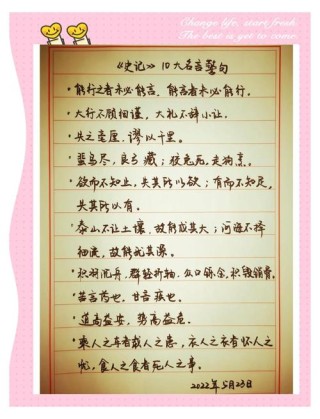 Change life, start fresh
The best is yet to come
《史记》10大名言警句
·能行之者未必能言，能言者未必能行。
·大行不顾细谨，大礼不辞小让。
·失之毫厘，谬以千里。
·蜚鸟尽，良弓藏；狡兔死，走狗烹。
·欲而不知止，失其所以欲；有而不知足，
失其所以有。
·泰山不让土壤，故能成其大；河海不择
细流，故能就其深。
·积羽沉舟，群轻折轴，众口铄金，积毁销骨。
·苦言药也，甘言疾也。
·道高益安，势高益危。
·乘人之车者载人之患，衣人之衣者怀人之
忧，食人之食者死人之事。
2022年5月23日